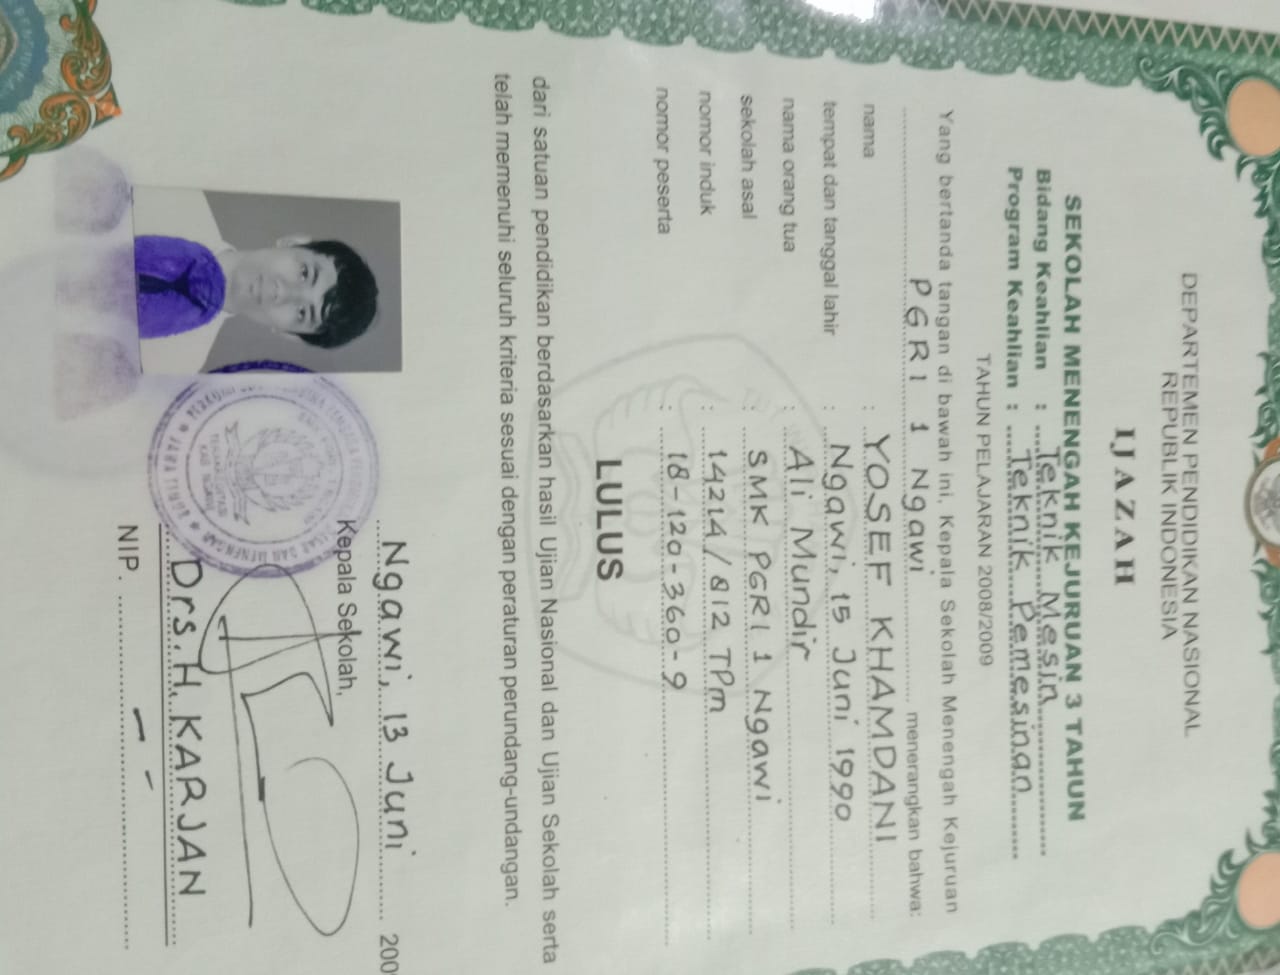 DEPARTEMEN PENDIDIKAN NASIONAL
REPUBLIK INDONESIA
IJAZAH
SEKOLAH MENENGAH KEJURUAN 3 TAHUN
Bidang Keahlian : Teknik Mesin
Program Keahlian : Teknik Pemesinan
TAHUN PELAJARAN 2008/2009
Yang bertanda tangan di bawah ini, Kepala Sekolah Menengah Kejuruan
PGRI 1 Ngawi menerangkan bahwa:
nama : YOSEF KHAMDANI
tempat dan tanggal lahir : Ngawi, 15 Juni 1990
nama orang tua : Ali Mundir
sekolah asal : SMK PGRI 1 Ngawi
nomor induk : 14214/812 TPm
nomor peserta : 18-120-360-9
LULUS
dari satuan pendidikan berdasarkan hasil Ujian Nasional dan Ujian Sekolah serta
telah memenuhi seluruh kriteria sesuai dengan peraturan perundang-undangan.
Ngawi, 13 Juni 200
Kepala Sekolah,
Drs. H. KARJAN
NIP. - -
JAWA TIMUR